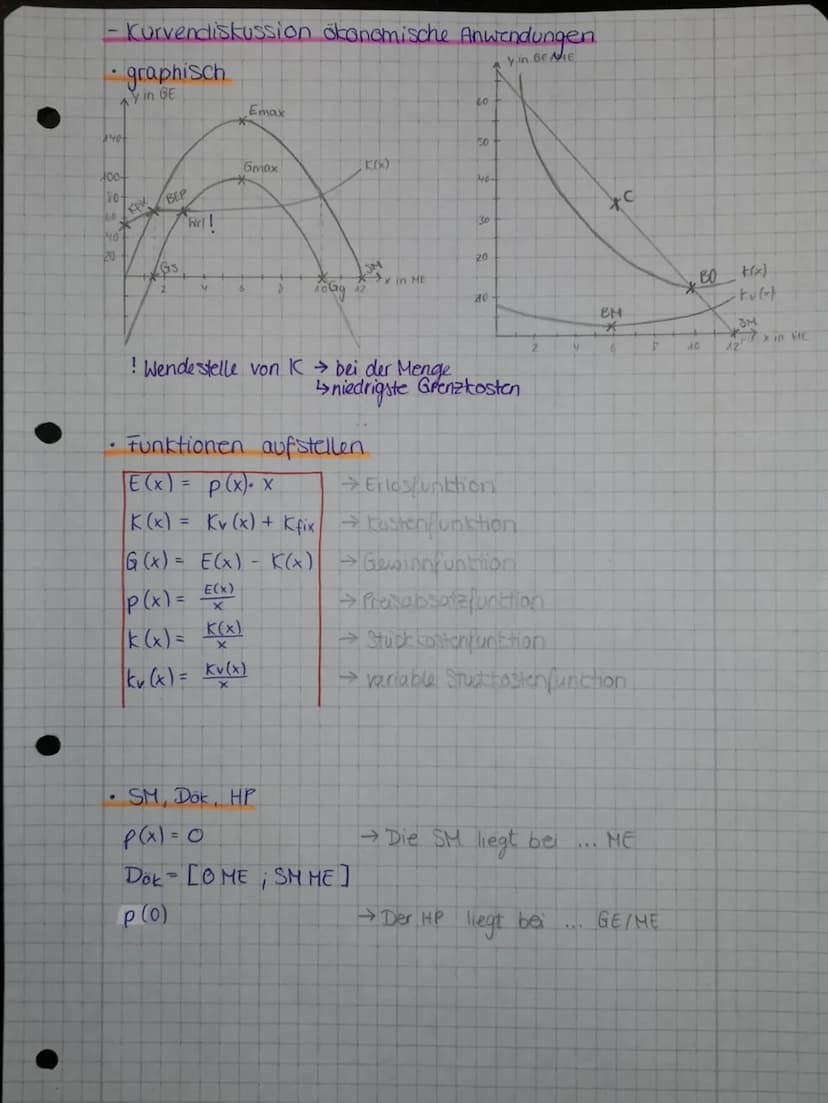 - Kurvendiskussion ökonomische Anwendungen
• graphisch
y in GE
Emax
140
Gmax
100
K(x)
80
Kfix
BEP
60
W!
40
20
Gs
Gg
SM
2 4 6 8 10 12 x in ME
y in GE/ME
60
50
40
C
30
20
BO
k(x)
kv(x)
10
BM
SM
2 4 6 8 10 12 x in ME
! Wendestelle von K → bei der Menge
↳ niedrigste Grenzkosten
• Funktionen aufstellen
E(x) = p(x)· x → Erlösfunktion
K(x) = Kv(x) + Kfix → Kostenfunktion
G(x) = E(x) - K(x) → Gewinnfunktion
p(x) = E(x)/x → Preisabsatzfunktion
k(x) = K(x)/x → Stückkostenfunktion
kv(x) = Kv(x)/x → variable Stückkostenfunction
• SM, Dök, HP
p(x) = 0 → Die SM liegt bei ... ME
Dök = [0 ME ; SM ME]
p(0) → Der HP liegt bei ... GE/ME